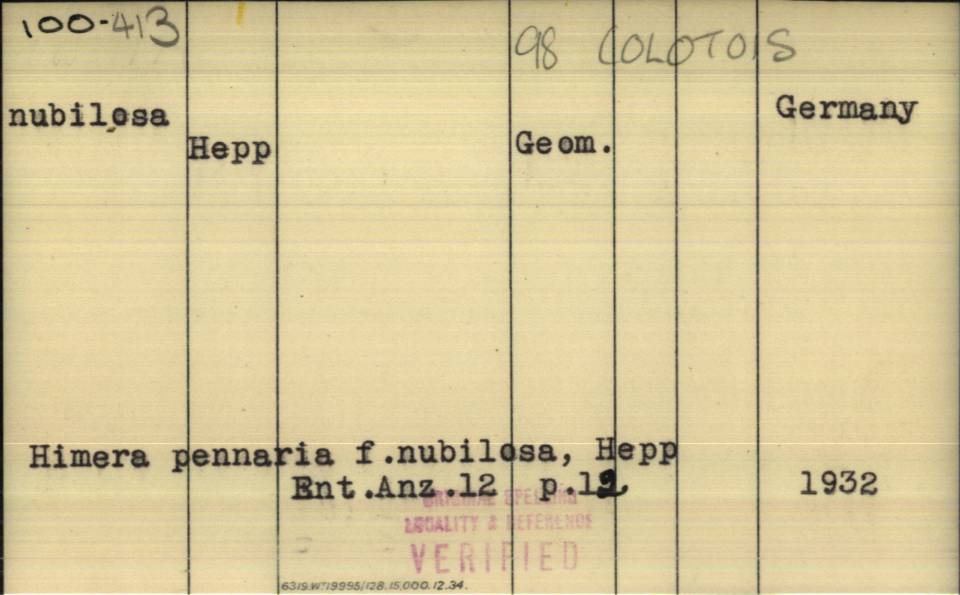 100-413
98 COLOTOIS
nubilosa
Germany
Hepp
Geom.
Himera pennaria f.nubilosa, Hepp
Ent.Anz.12 p.12 1932
ORIGINAL SPELLING
LOCALITY & REFERENCE
VERIFIED
6319.Wt19995/128.15,000.12.34.